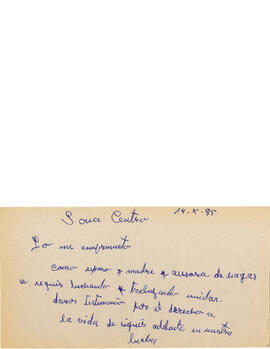 14-X-95
Sona Centro
Yo me comprometo
como esposa y madre y
a seguir luchando y trabajando unidas.
damos testimonio por el derecho a
la vida de seguir adelante en nuestra
lucha